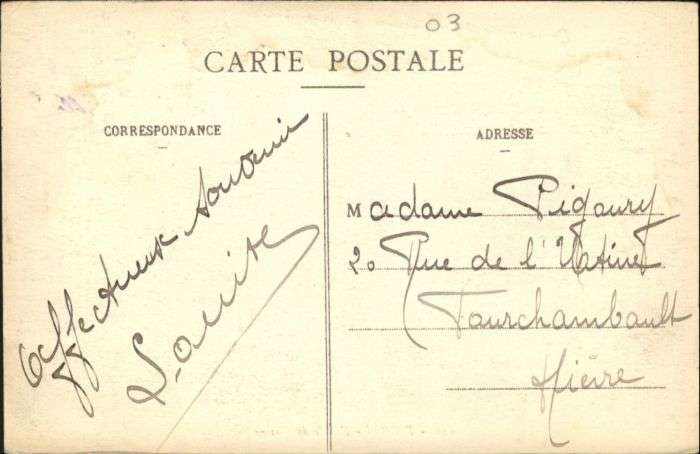 03
CARTE POSTALE
CORRESPONDANCE
Affectueux souvenir
Louise
ADRESSE
Madame Pigoury
20 Rue de l'
Fourchambault
Nièvre